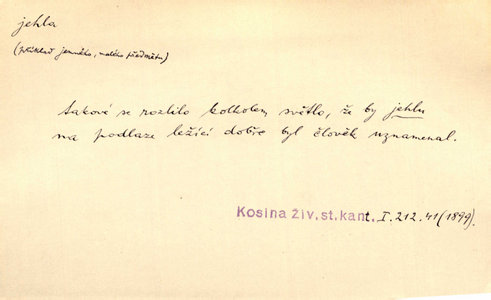 jehla
(příklad jemného, malého předmětu)
takové se rozlilo kolkolem světlo, že by jehlu
na podlaze ležící dobře byl člověk uznamenal.
Kosina Živ. st. kant. I. 212. 41 (1899).